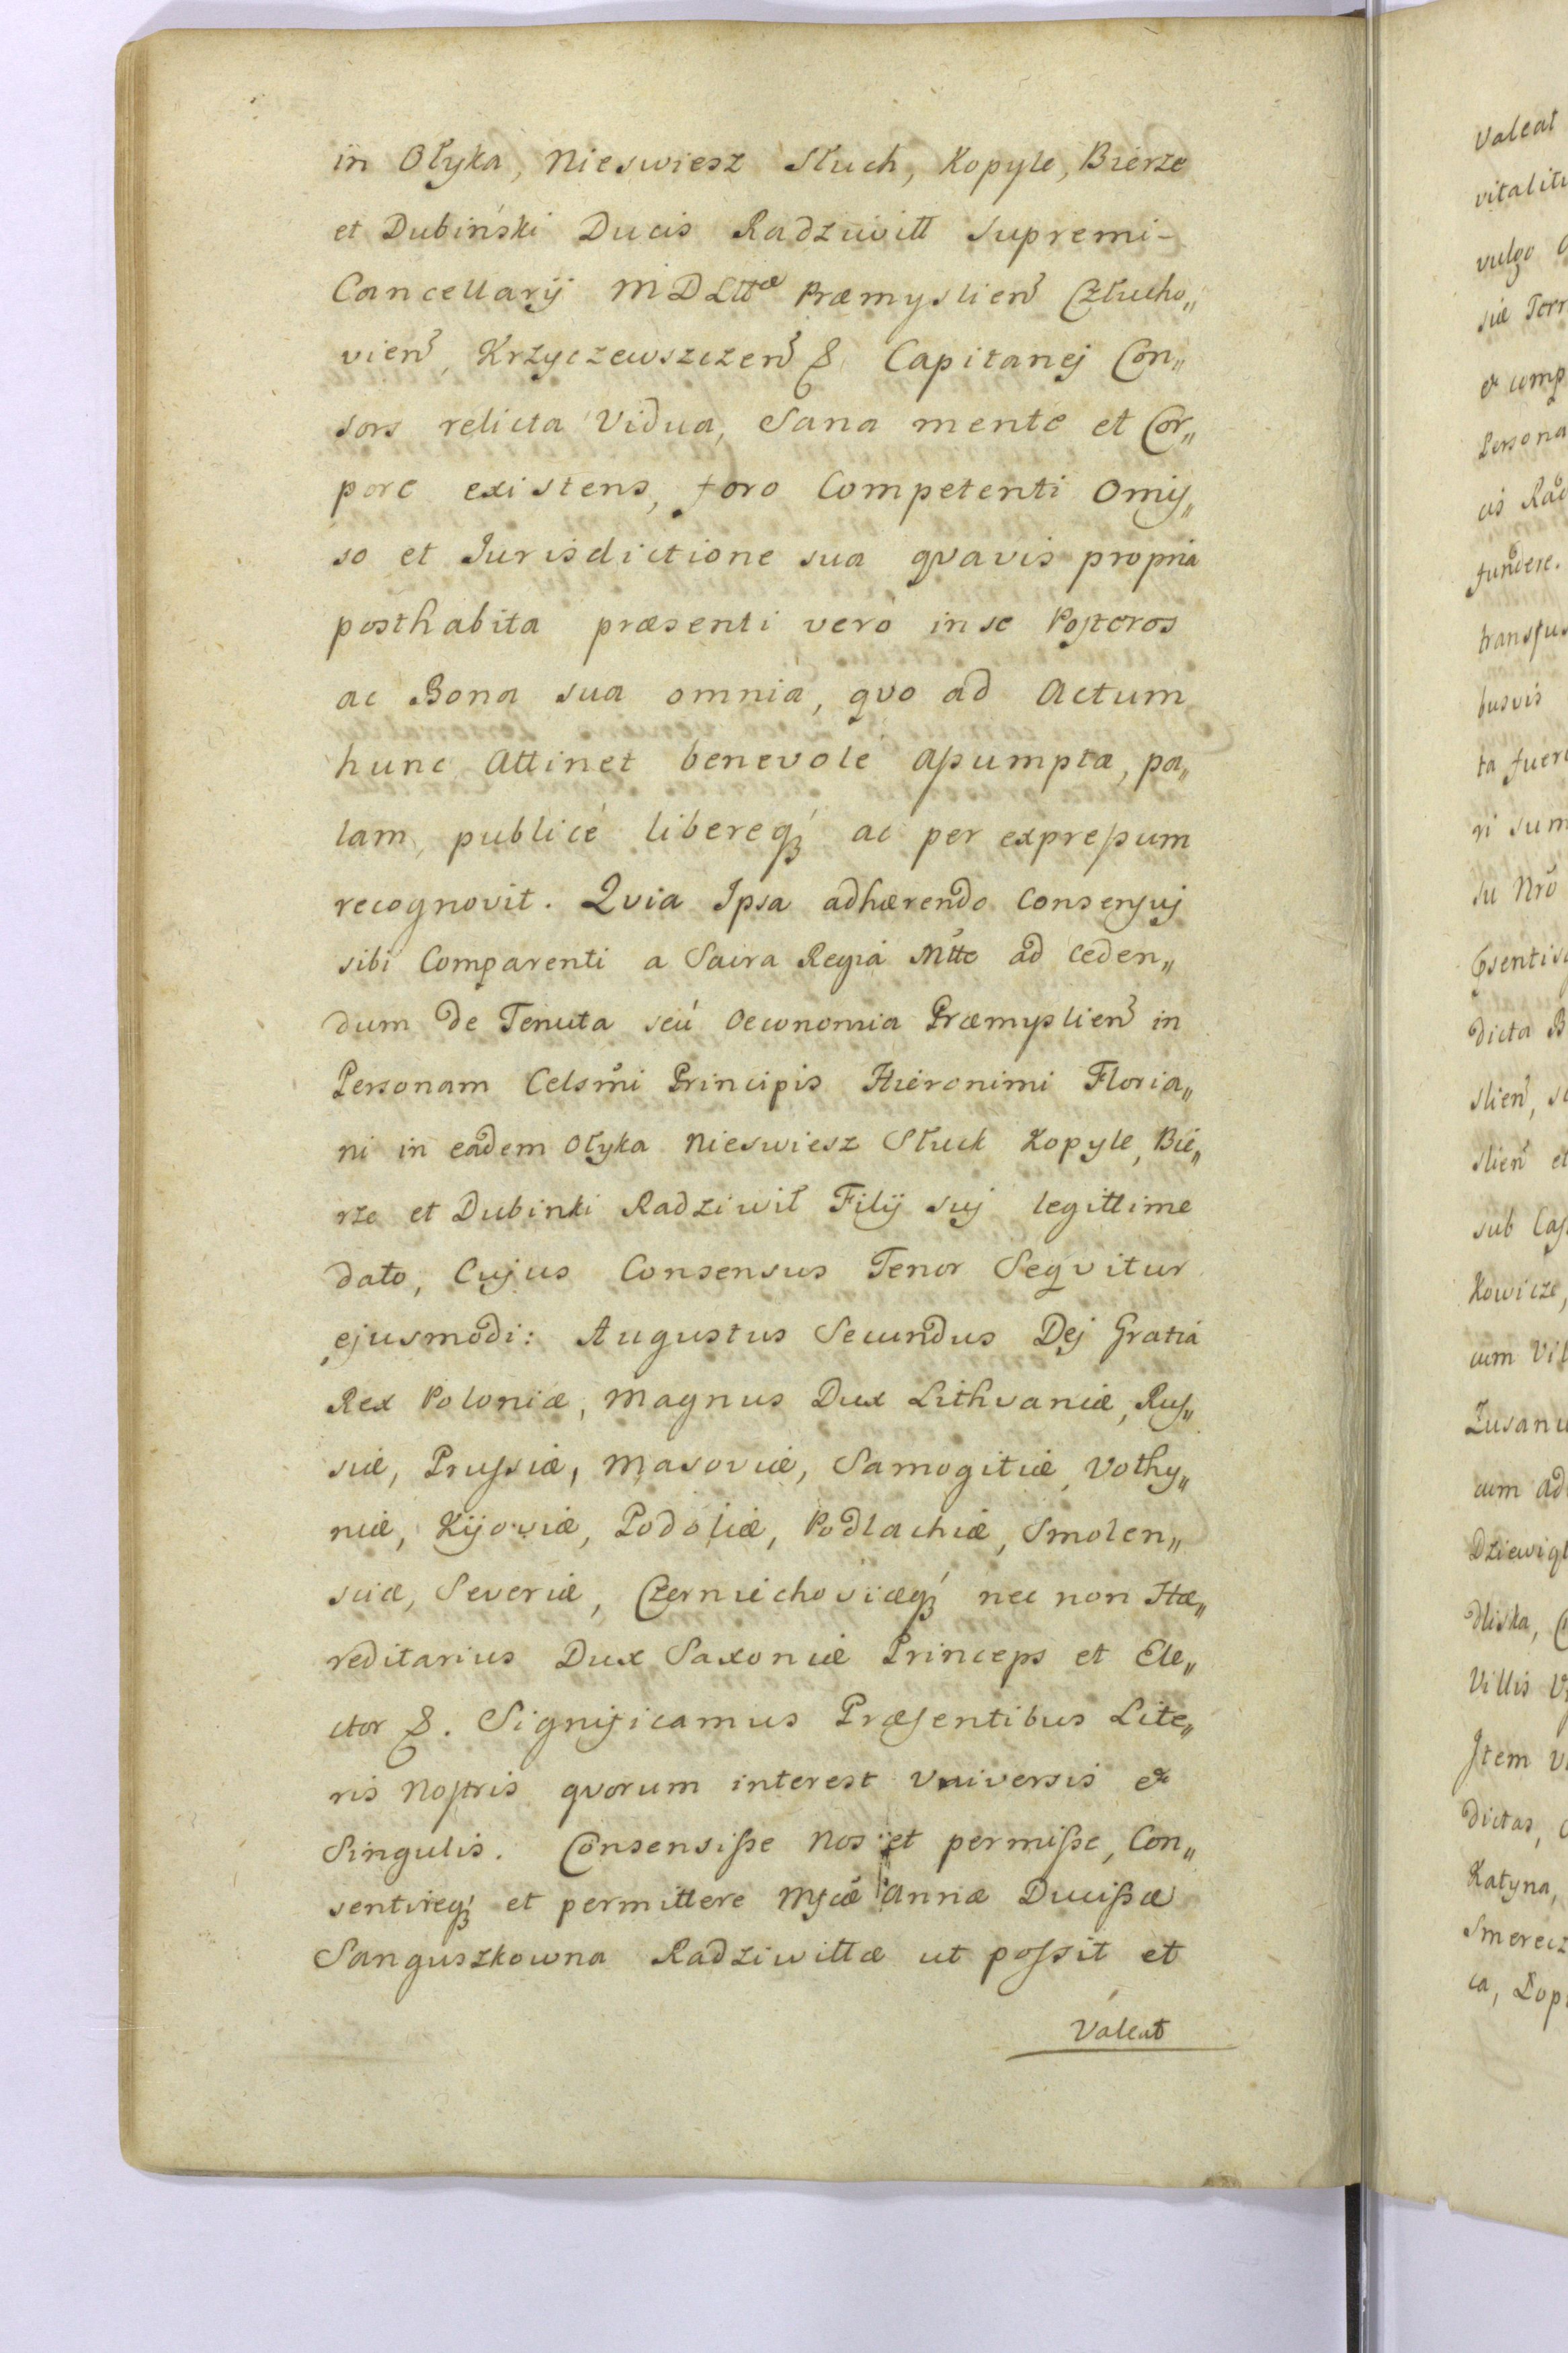 in Ołyka, Nieswiesz Słuch, Kopyle, Bierze
et Dubiński Ducis Radziwiłł Supremi-
Cancellarij MDLttæ Præmyslien̄ Człucho„
vien̄, Krzyczewszczen̄ &. Capitanej Con„
sors relicta Vidua, Sana mente et Cor„
pore existens, foro Competenti Omis„
so et Jurisdictione sua qvavis propria
posthabita præsenti vero in se Posteros
ac Bona sua omnia, qvo ad Actum
hunc Attinet benevole assumpta, pa„
lam, publicé libereq́ꝫ ac per expressum
recognovit. Qvia Ipsa adhærendo Consensuj
sibi Comparenti a Sacra Regia Mtte ad Ceden„
dum de Tenuta seú Oeconomia Præmyslien̄ in
Personam Celsm̃i Principis Hieronimi Floria„
ni in eadem Ołyka Nieswiesz Słuck Kopyle, Bie„
rze et Dubinki Radziwił Filij suj legittime
dato, Cujus Consensus Tenor Seqvitur
ejusmodi: Augustus Secundus Dej Gratiá
Rex Poloniæ, Magnus Dux Lithvaniæ, Rus„
siæ, Prussiæ, Masoviæ, Samogitiæ, Vołhy„
niæ, Kijoviæ, Podoliæ, Podlachiæ, Smolen„
sciæ, Severiæ, Czerniechoviæq́ꝫ nec non Hæ„
reditarius Dux Saxoniæ Princeps et Ele„
ctor &. Significamus Præsentibus Lite„
ris Nostris qvorum interest Universis et
Singulis. Consensisse Nos et permisse, Con„
sentireq́ꝫ et permittere Mfcæ Annæ Ducissæ
Sanguszkowna Radziwiłłæ ut possit et
Valeat
Valeat
vulgo
siæ Terr
et comp
Persona
cis Rad
fundere.
transfus
busvis
ta fuer
ri sum
su Nrõ
dicta B
slien̄, s
slien̄ et
sub Cas
kowicze,
cum Vil
cum ad
dliska, C
Villis
Item V
dictas,
Katyna,
Smerecz
ca, Łop